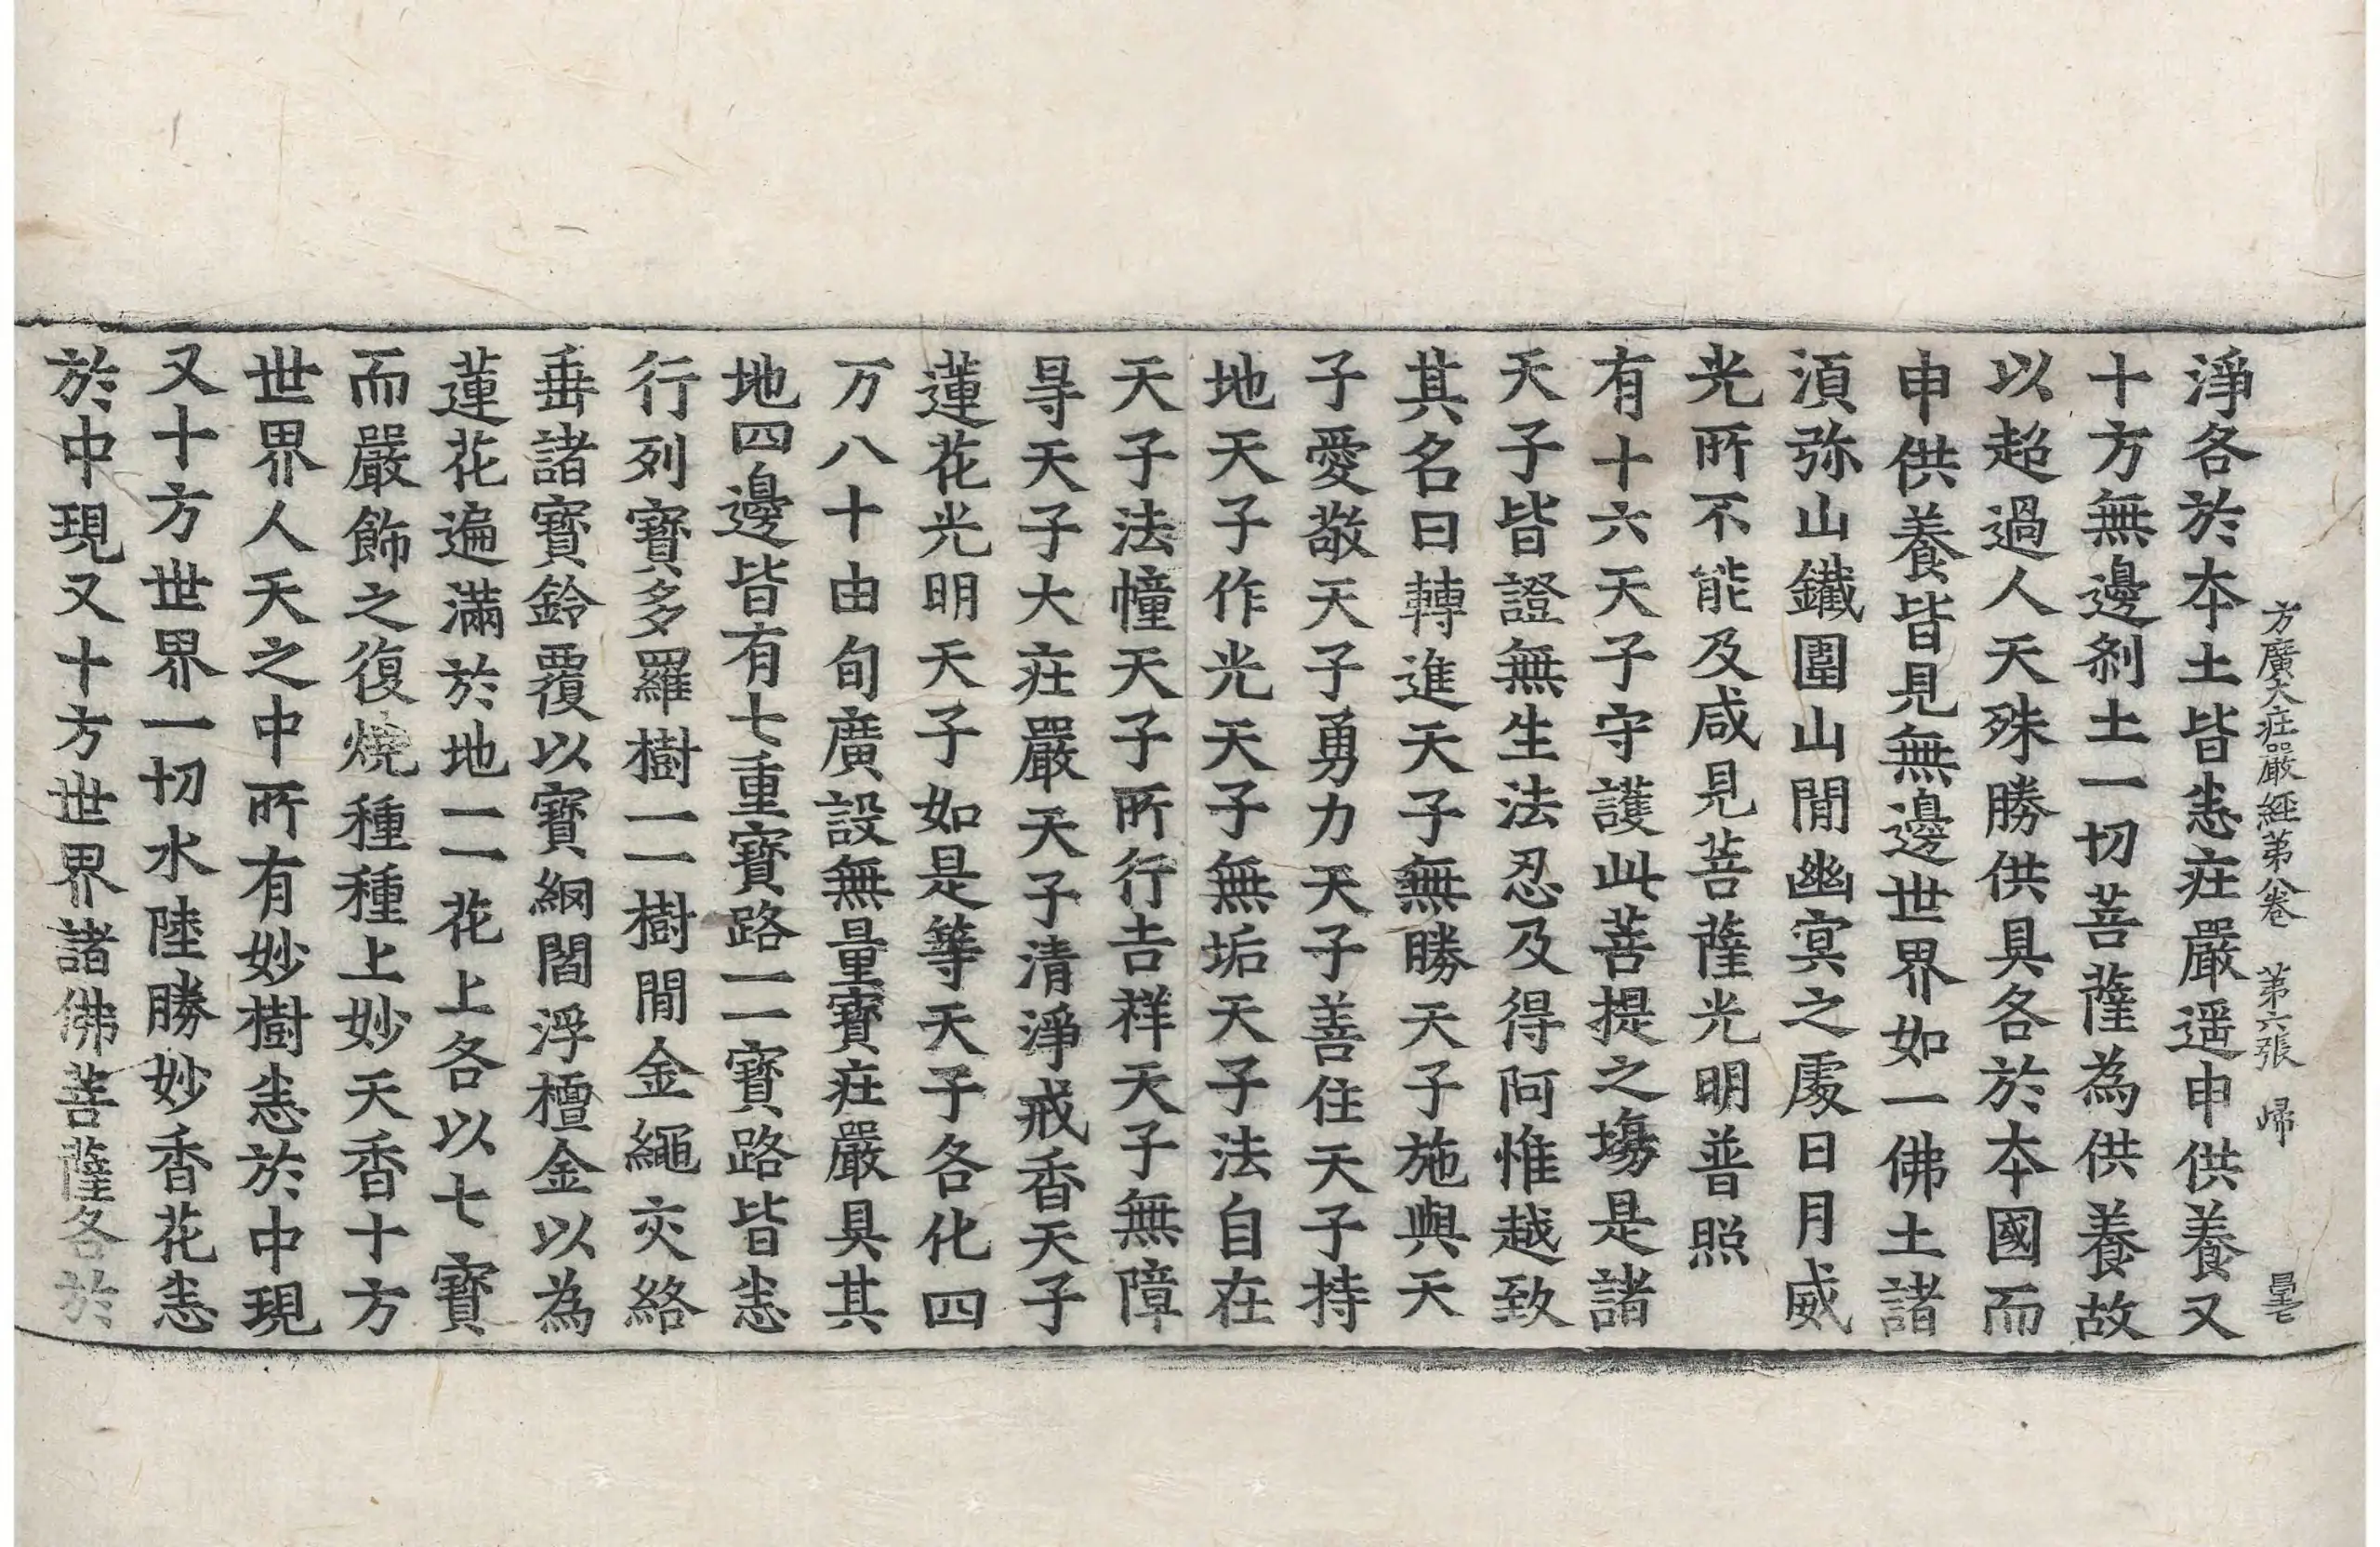 方廣大莊嚴經第八卷　第六張　歸
淨各於本土皆悉莊嚴遥申供養又
十方無邊刹土一切菩薩為供養故
以超過人天殊勝供具各於本國而
申供養皆見無邊世界如一佛土諸
須弥山鐵圍山閒幽冥之處日月威
光所不能及咸見菩薩光明普照
有十六天子守護此菩提之場是諸
天子皆證無生法忍及得阿惟越致
其名曰轉進天子無勝天子施與天
子愛敬天子勇力天子善住天子持
地天子作光天子無垢天子法自在
天子法幢天子所行吉祥天子無障
㝵天子大莊嚴天子清淨戒香天子
蓮花光明天子如是等天子各化四
万八十由旬廣設無量寶莊嚴具其
地四邊皆有七重寶路一一寶路皆悉
行列寶多羅樹一一樹閒金繩交絡
垂諸寶鈴覆以寶網閻浮檀金以為
蓮花遍滿於地一一花上各以七寶
而嚴飾之復燒種種上妙天香十方
世界人天之中所有妙樹悉於中現
又十方世界一切水陸勝妙香花悉
於中現又十方世界諸佛菩薩各於